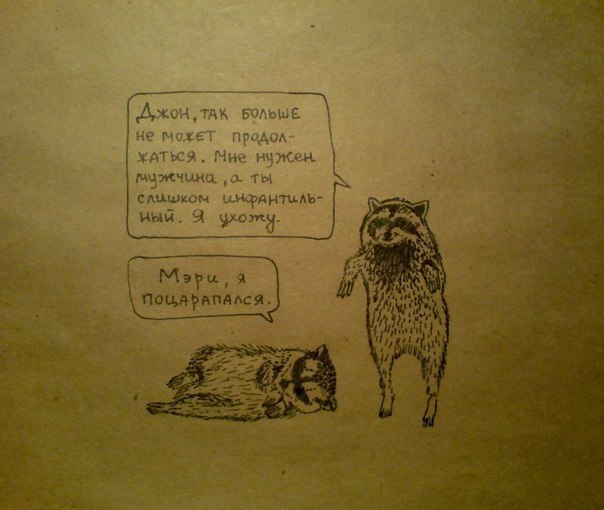 Джон, так больше
не может продол-
жаться. Мне нужен
мужчина, а ты
слишком инфантиль-
ный. Я ухожу.
Мэри, я
поцарапался.